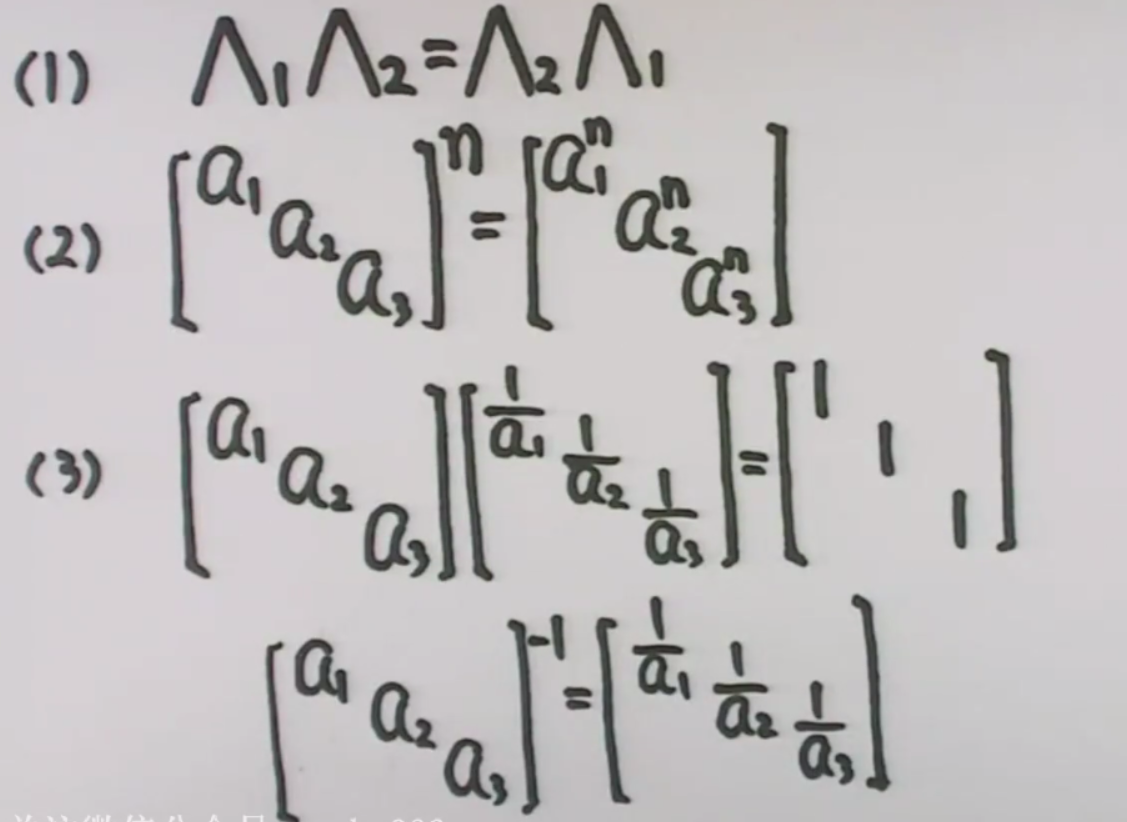 (1) Λ₁Λ₂=Λ₂Λ₁
(2) [a₁ a₂ a₃]ⁿ = [a₁ⁿ a₂ⁿ a₃ⁿ]
(3) [a₁ a₂ a₃][1/a₁ 1/a₂ 1/a₃]=[1 1 1]
[a₁ a₂ a₃]⁻¹=[1/a₁ 1/a₂ 1/a₃]